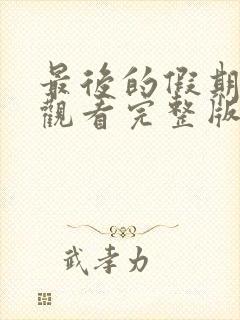 最後的假期
觀看完整版
武孝力